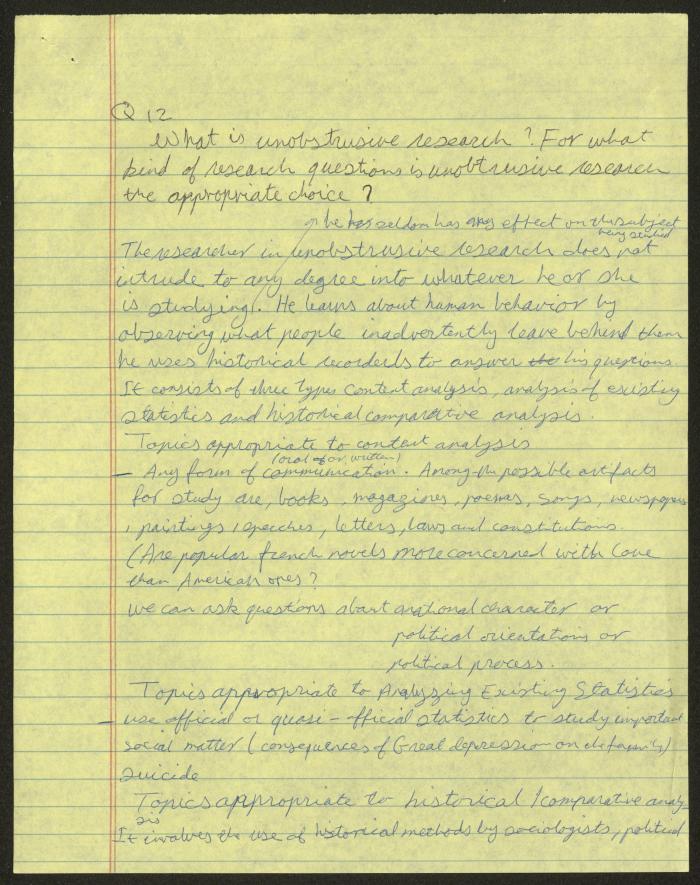 Q 12
What is unobstrusive research? For what
kind of research questions is unobtrusive research
the appropriate choice?
or he has seldom has any effect on the subject
being studied
The researcher in unobstrusive research does not
intrude to any degree into whatever he or she
is studying. He learns about human behavior by
observing what people inadvertently leave behind them
he uses historical recorderds to answer the his questions.
It consists of three types Content analysis, analysis of existing
statistics and historical comparative analysis.
Topics appropriate to content analysis
(oral or written)
– Any form of communication. Among the possible artifacts
for study are, books, magazines, poems, songs, newspapers
, paintings, speeches, letters, laws and constitutions.
(Are popular french novels more concerned with love
than American ones?
we can ask questions about national character or
political orientations or
political process.
Topics appropriate to Analyzing Existing Statistics
– use official or quasi-official statistics to study important
social matter (consequences of Great depression on the family)
suicide
Topics appropriate to historical / comparative analy
sis
It involves the use of historical methods by sociologists, political